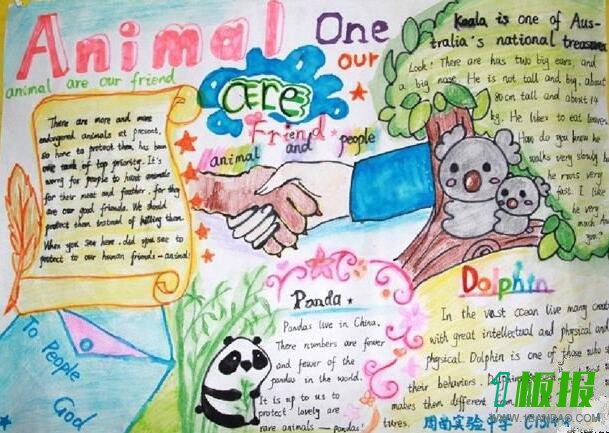 Animal
One
our
animal are our friend
are
Friend
animal and people
There are more and more
endangered animals at present,
so how to protect them has been
one task of top priority. It's
worry for people to hunt animals
for their meat and feather. for they
are our good friends. We should
protect them instead of killing them.
When you see here. did you see to
protect to our human friends—animal!
To People
God
Koala is one of Aus-
tralia's national treasures
Look! There are has two big ears, and
a big nose. He is not tall and big, about
80cm tall and about 14
kg. He likes to eat leaves.
How do you know he
walks very slowly, he
he runs very
fast. I like
he very
much. And
you?
Panda
Pandas live in China.
There numbers are fewer
and fewer of the
pandas in the world.
It is up to us to
protect lovely are
rare animals—pandas!
Dolphin
In the vast ocean live many creat
with great intellectual and physical and
physical. Dolphin is one of those who
their behaviors.
makes them different
tures.
板报